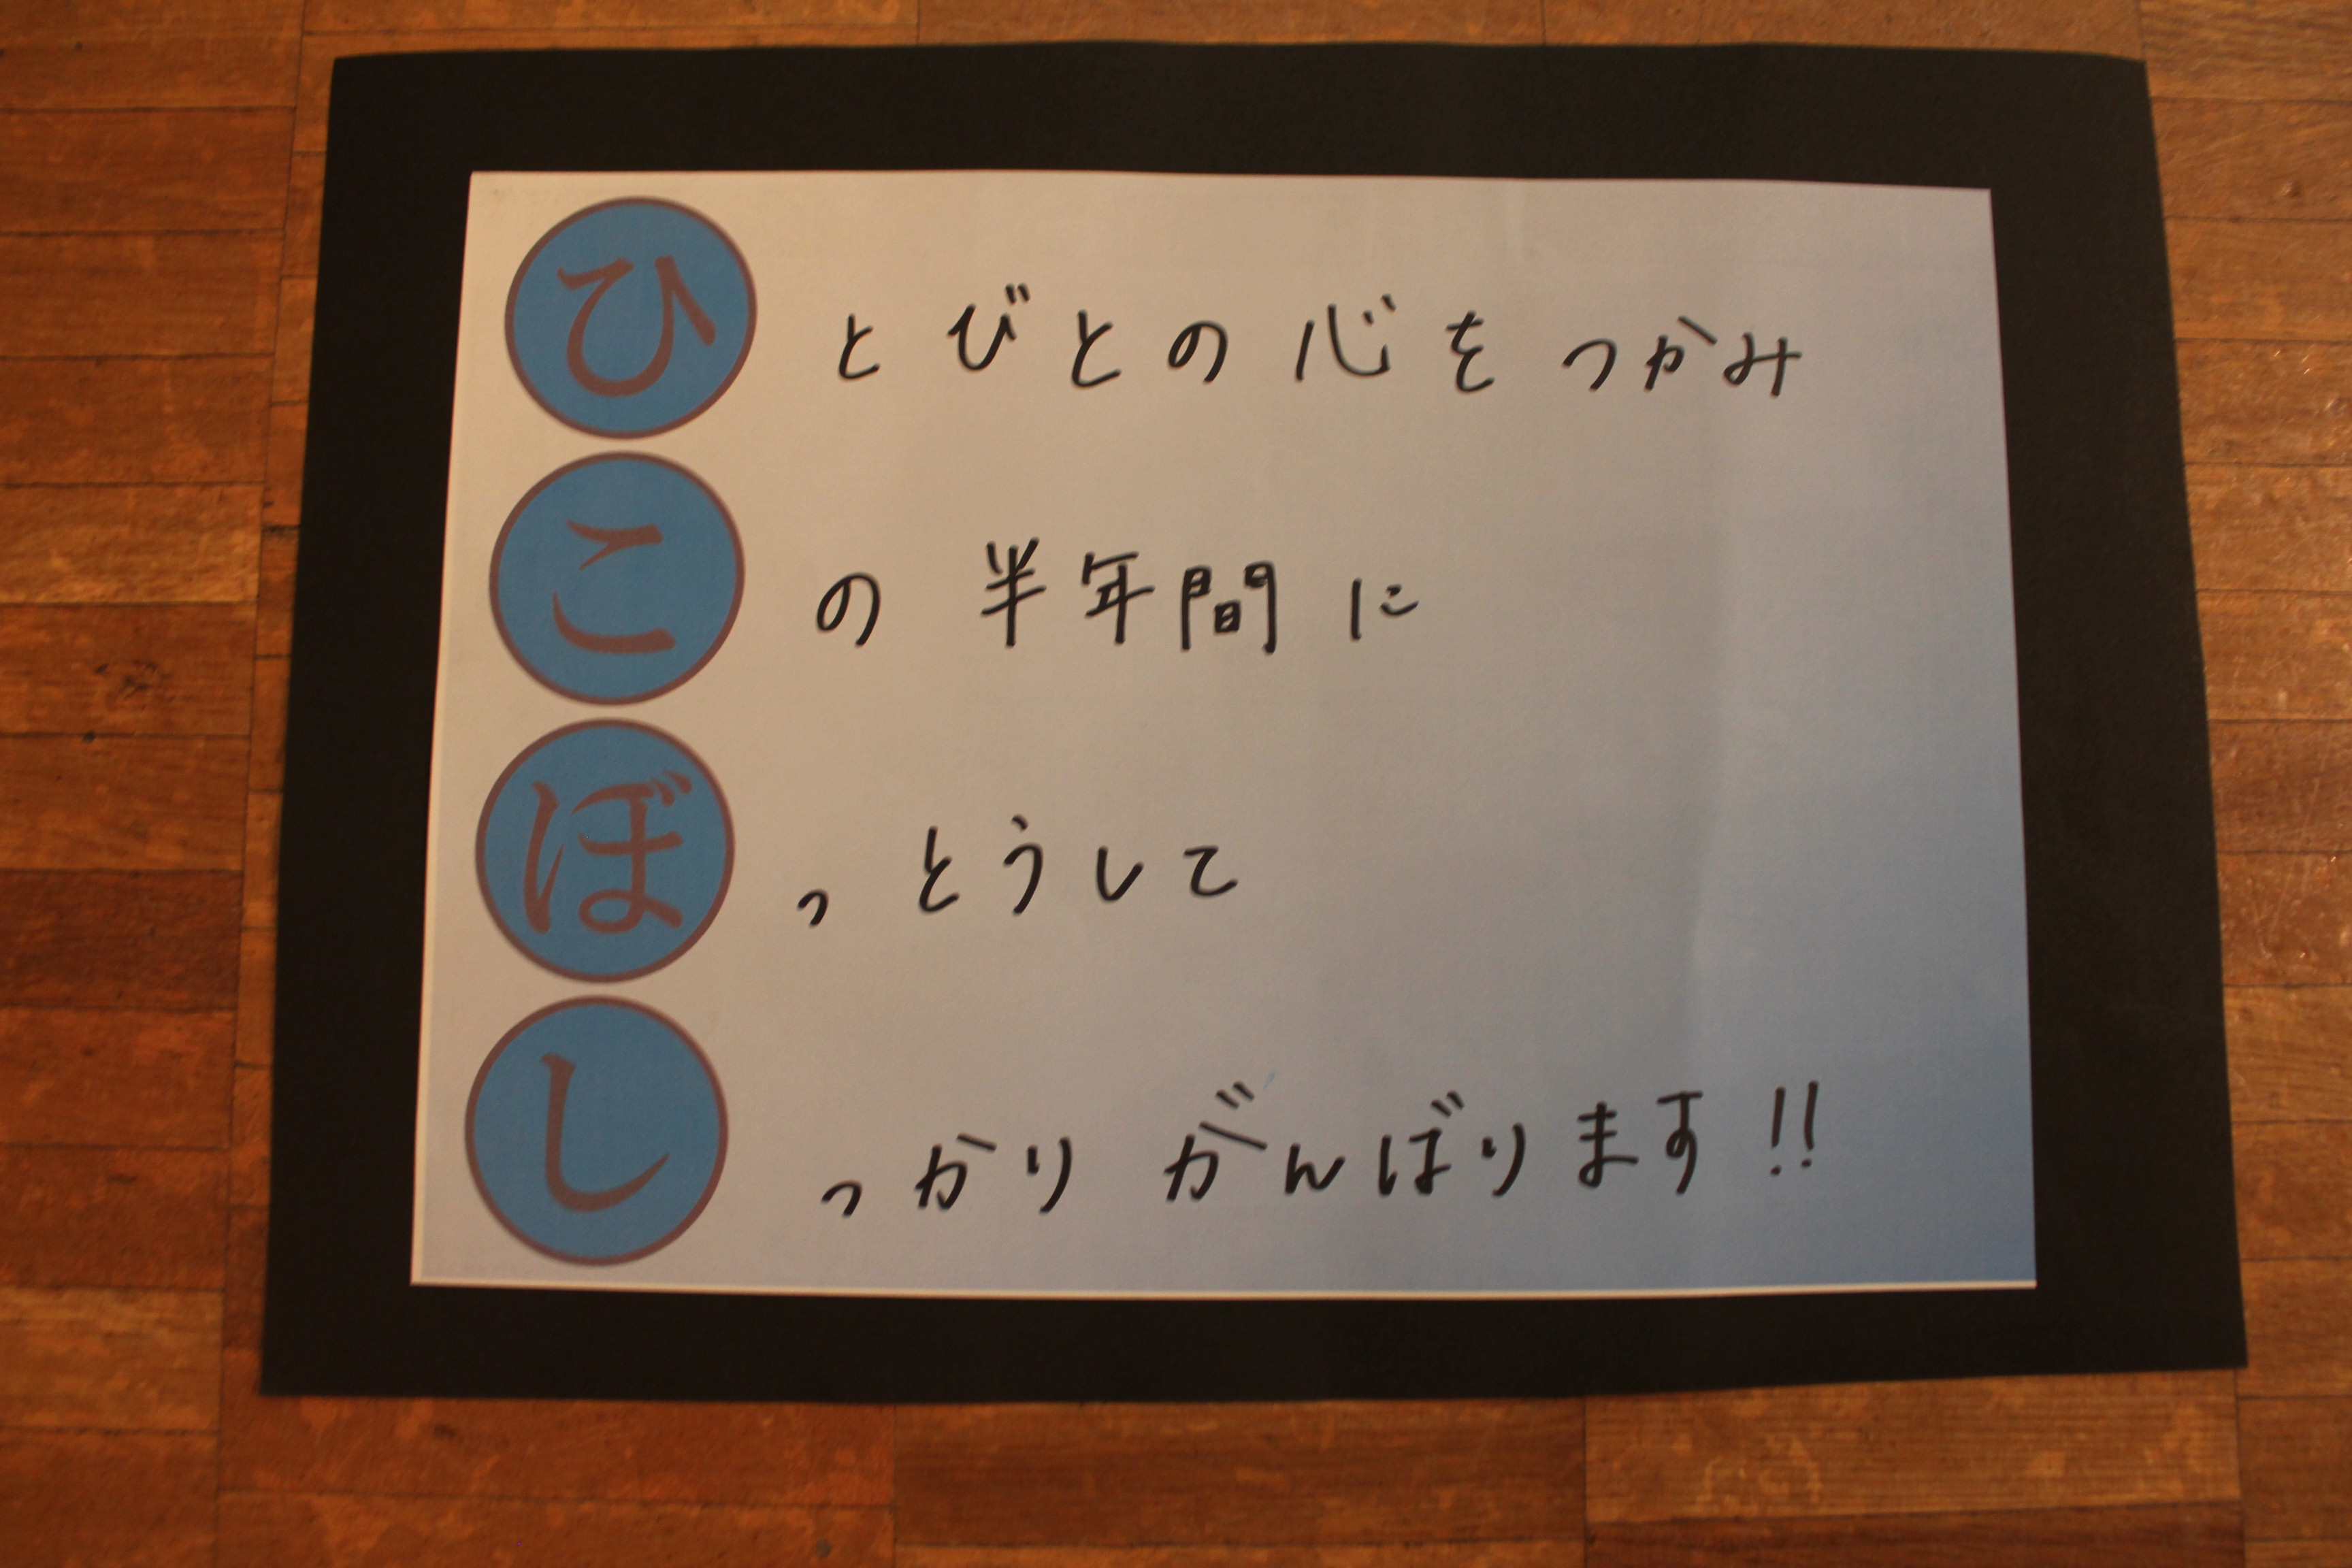 ひとびとの心をつかみ
この半年間に
ぼっとうして
しっかりがんばります!!